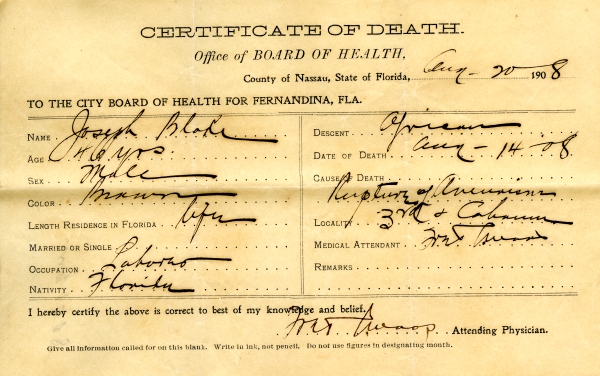 CERTIFICATE OF DEATH.
Office of BOARD OF HEALTH.
County of Nassau, State of Florida, Aug - 20 1908
TO THE CITY BOARD OF HEALTH FOR FERNANDINA, FLA.
NAME Joseph Blake
AGE yrs
SEX Male
COLOR Brown
LENGTH RESIDENCE IN FLORIDA life
MARRIED OR SINGLE
OCCUPATION Laborer
NATIVITY Florida
DESCENT African
DATE OF DEATH Aug - 14 - 08
CAUSE OF DEATH
Rupture of Aneurism
LOCALITY 3rd & Calhoun
MEDICAL ATTENDANT
REMARKS
I hereby certify the above is correct to best of my knowledge and belief.
Attending Physician.
Give all information called for on this blank. Write in ink, not pencil. Do not use figures in designating month.